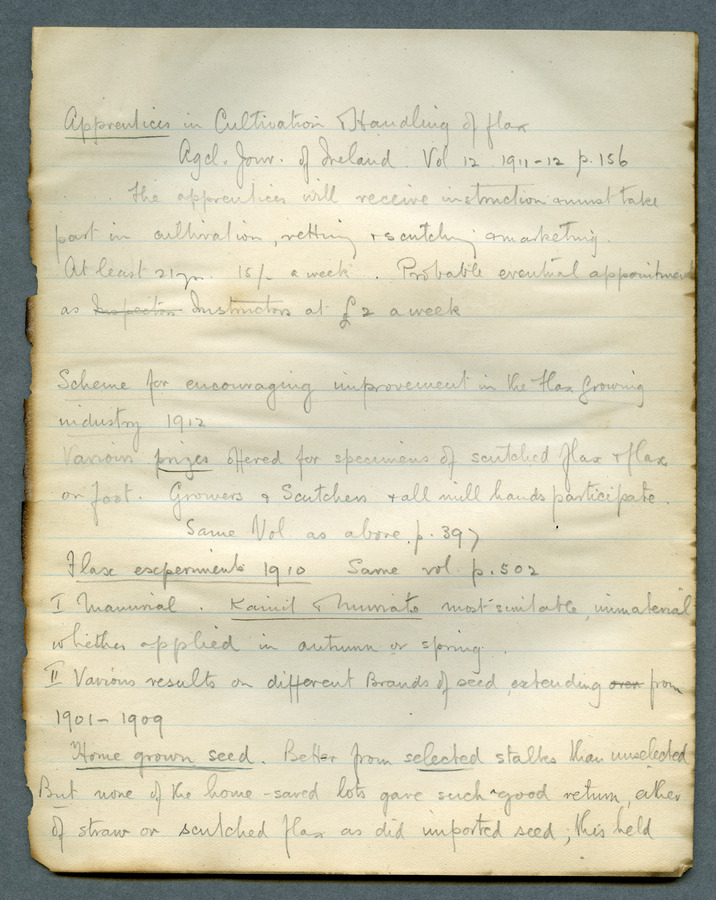 Apprentices in Cultivation & Handling of flax
Agcl. Jour. of Ireland Vol 12 1911-12 p. 156
The apprentices will receive instruction & must take
part in cultivation, retting & scutching & marketing.
At least 21 yrs. 15/- a week. Probable eventual appointment
as Inspectors Instructors at £2 a week
Scheme for encouraging improvement in the Flax Growing
industry 1912
Various prizes offered for specimens of scutched flax & flax
on foot. Growers & Scutchers & all mill hands participate.
Same Vol as above p. 397
Flax experiments 1910 Same vol. p. 502
I Manurial. Kainit & Muriate most suitable, immaterial
whether applied in autumn or spring.
II Various results on different Brands of seed, extending over from
1901-1909
Home grown seed. Better from selected stalks than unselected
But none of the home-saved lots gave such good return, either
of straw or scutched flax as did imported seed; this held